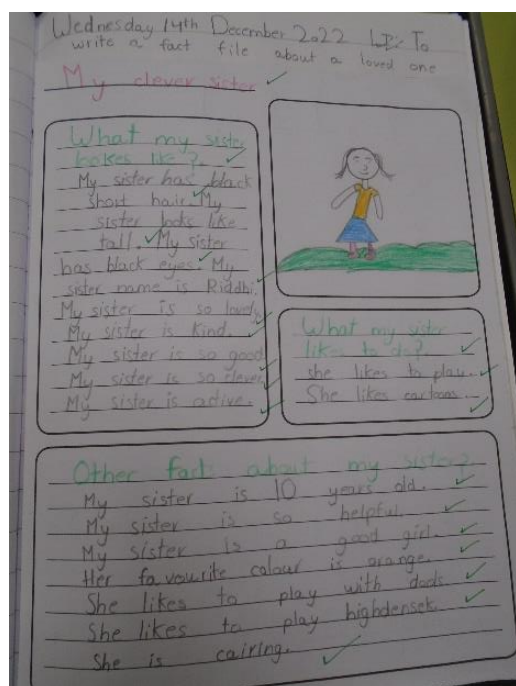 Wednesday 14th December 2022 LI: To
write a fact file about a loved one
My clever sister
What my sister
lookes like?
My sister has black
short hair. My
sister looks like
tall. My sister
has black eyes. My
sister name is Riddhi.
My sister is so lovely.
My sister is kind.
My sister is so good.
My sister is so clever.
My sister is active.
What my sister
likes to do?
she likes to play.
She likes cartoons.
Other facts about my sister?
My sister is 10 years old.
My sister is so helpful.
My sister is a good girl.
Her favourite colour is orange.
She likes to play with dods
She likes to play highdensek.
She is cairing.